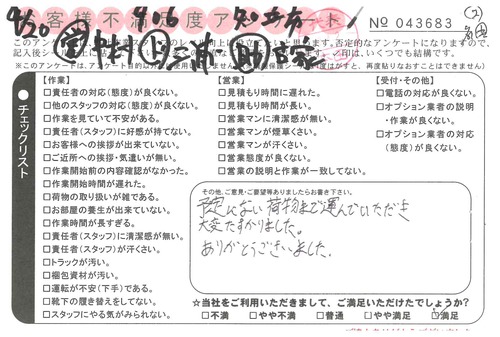 お客様不満足度アンケート
№ 043683
このアンケートは
否定的なアンケートになりますので、
記入後シー
いいえ、印は、いくつでも結構です。
チェックリスト
【作業】
□責任者の対応(態度)が良くない。
□他のスタッフの対応(態度)が良くない。
□作業を見ていて不安がある。
□責任者(スタッフ)に好感が持てない。
□お客様への挨拶が出来ていない。
□ご近所への挨拶・気遣いが無い。
□作業開始前の内容確認がなかった。
□作業開始時間が遅れた。
□荷物の取り扱いが雑である。
□お部屋の養生が出来ていない。
□作業時間が長すぎる。
□責任者(スタッフ)に清潔感が無い。
□責任者(スタッフ)が汗くさい。
□トラックが汚い。
□梱包資材が汚い。
□運転が不安(下手)である。
□靴下の履き替えをしてない。
□スタッフにやる気がみられない。
【営業】
□見積もり時間に遅れた。
□見積もり時間が長い。
□営業マンに清潔感が無い。
□営業マンが煙草くさい。
□営業マンが汗くさい。
□営業態度が良くない。
□営業の説明と作業が一致してない。
【受付・その他】
□電話の対応が良くない。
□オプション業者の説明
・作業が良くない。
□オプション業者の対応
(態度)が良くない。
その他、ご意見・ご要望等ありましたらお書き下さい。
予定にない荷物まで運んでいただき
大変たすかりました。
ありがとうございました。
☆当社をご利用いただきまして、ご満足いただけたでしょうか?
□不満 □やや不満 □普通 □やや満足 □満足